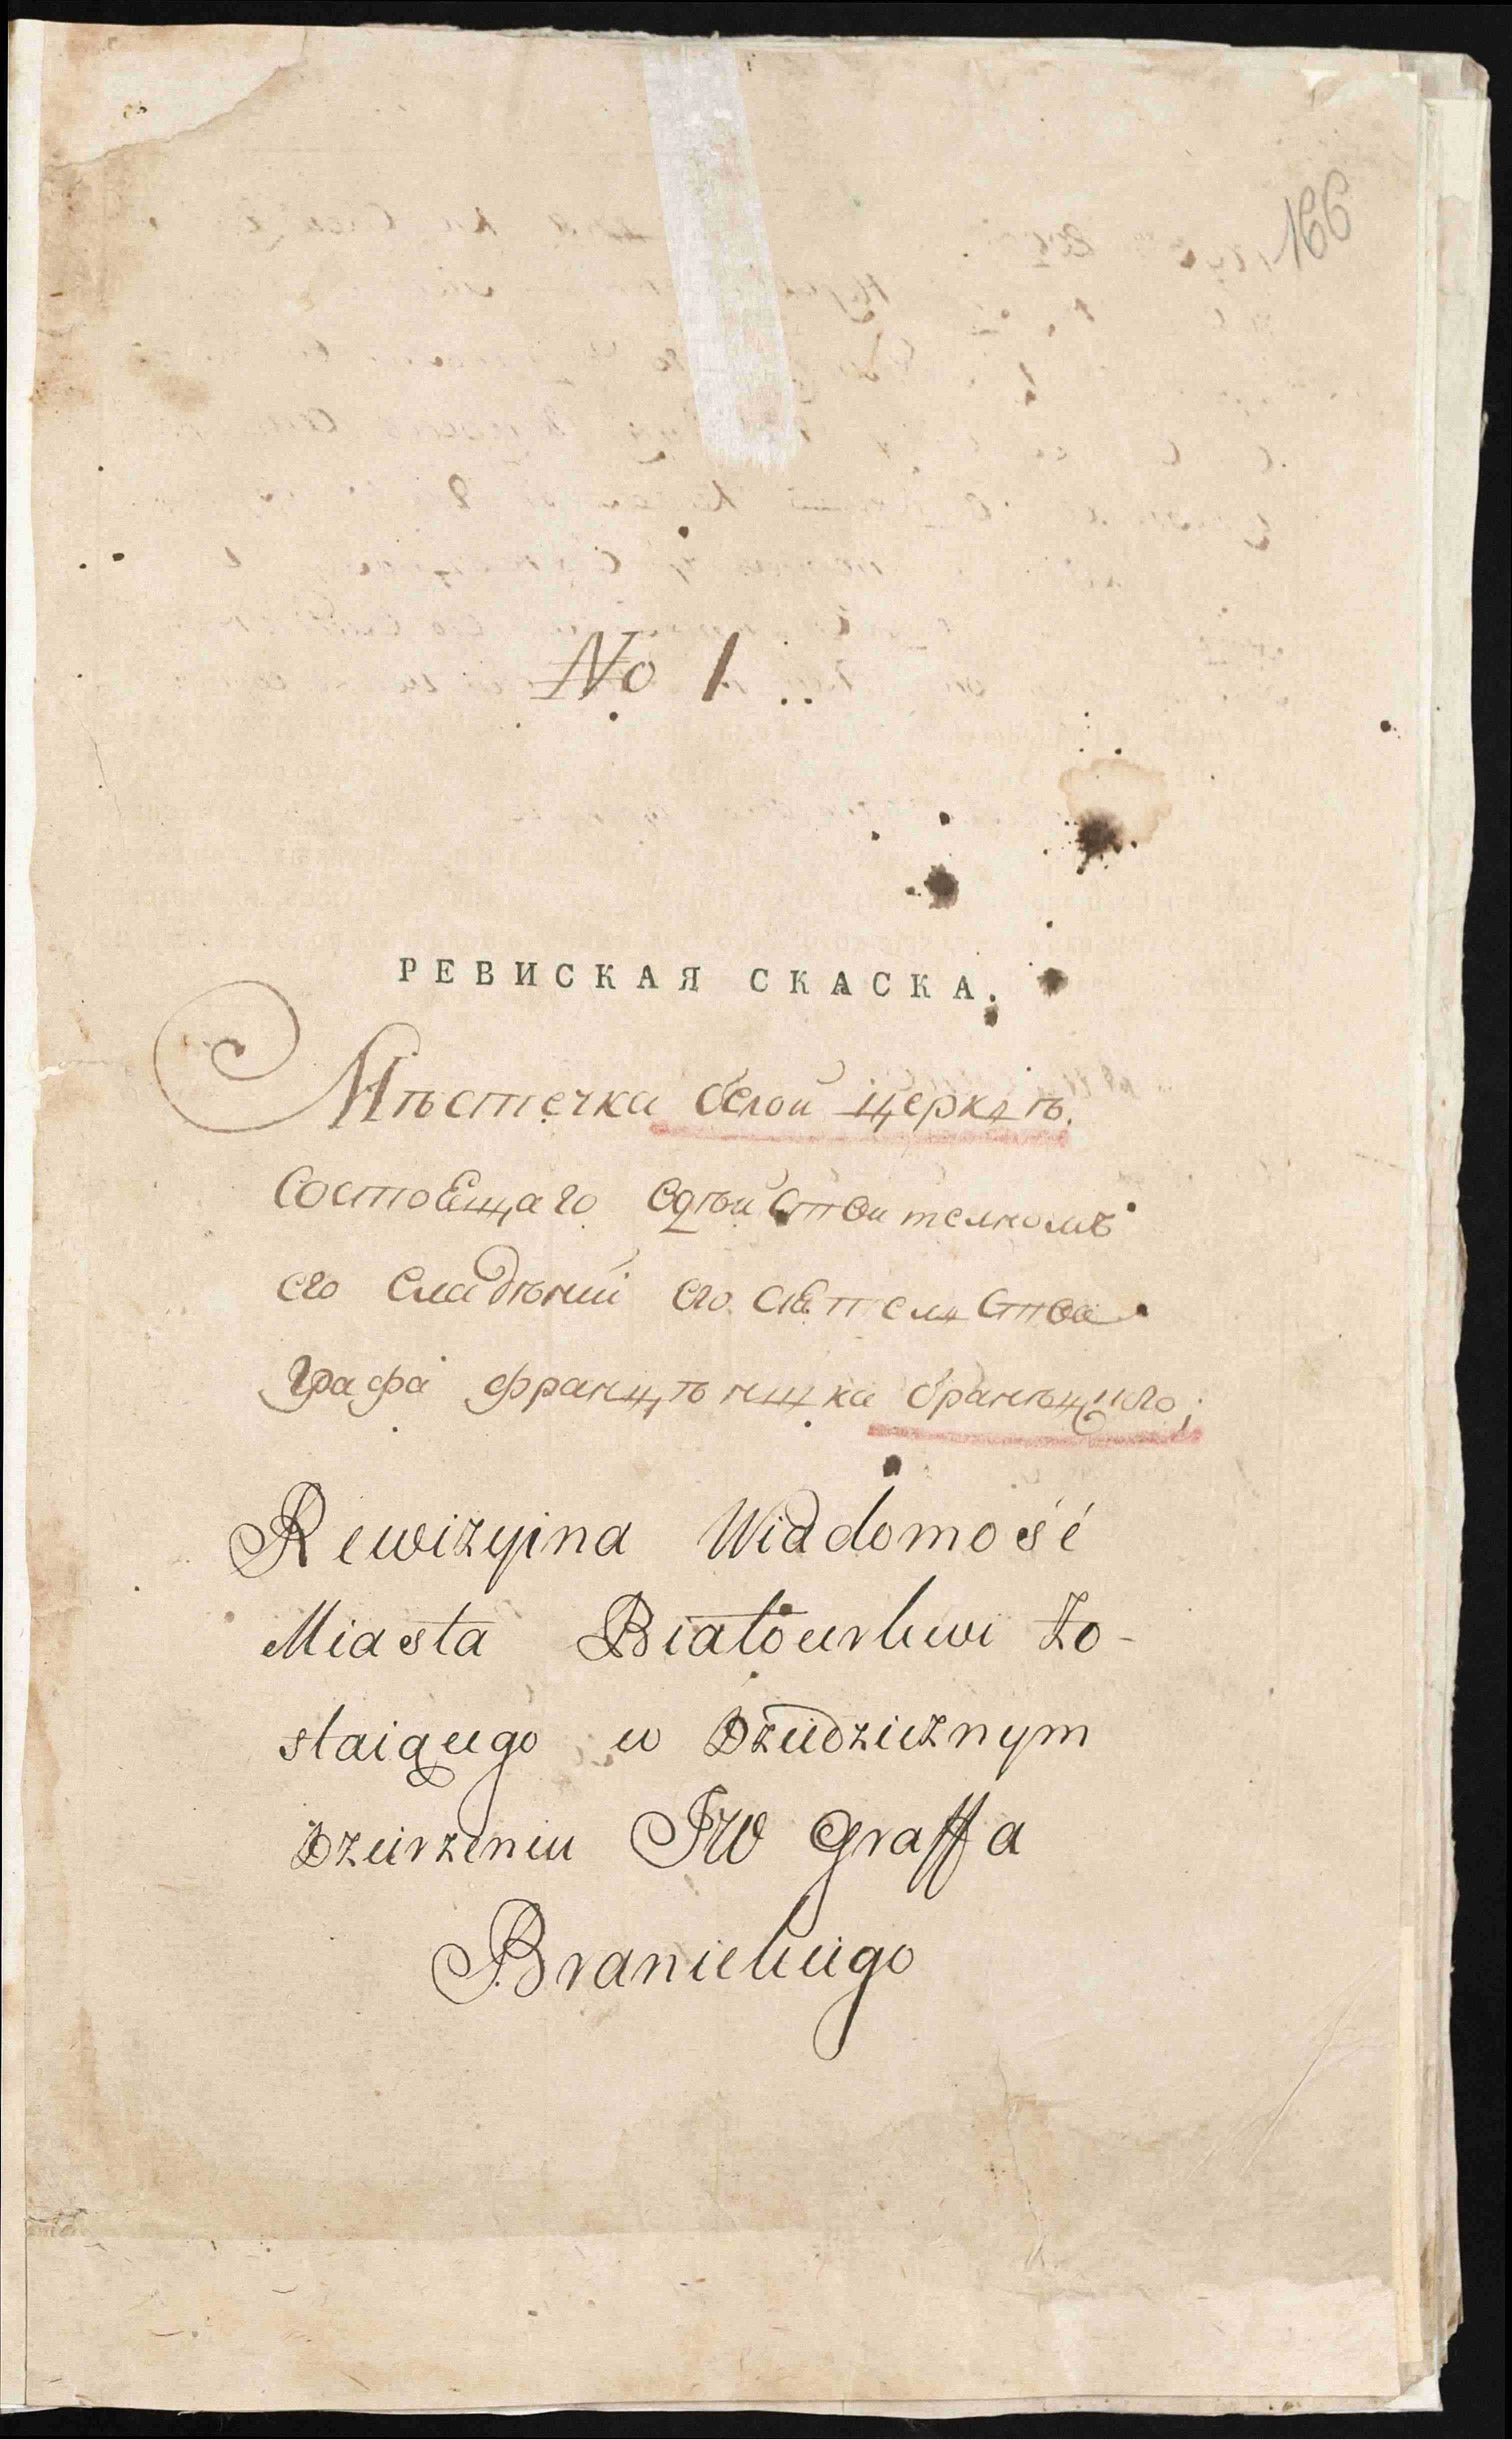 166
No 1
РЕВИСКАЯ СКАСКА.
Мѣстечка белой церквѣ.
состоещаго
его владѣний его
графа францѣ бранѣцкого,
Rewizyina Wiadomość
Miasta Białocerkwi Zo-
staiącego w Dziedzicznym
Dzierzeniu JW Graffa
Branickiego